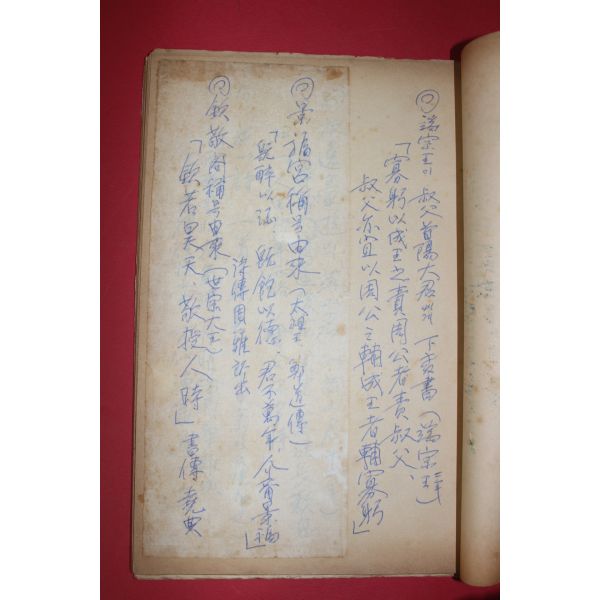 ○ 端宗王이 叔父 首陽大君에게 下敎書 (端宗王 年)
「寡躬以成王之責周公者責叔父、
叔父亦宜以周公之輔成王者輔寡躬」
○ 景福宮稱号由來 (太祖王 鄭道傳)
「旣醉以酒 旣飽以德、君子萬年、介爾景福」
詩傳周雅 出
○ 欽敬閣稱号由來 (世宗大王)
「欽若昊天、敬授人時」書傳堯典